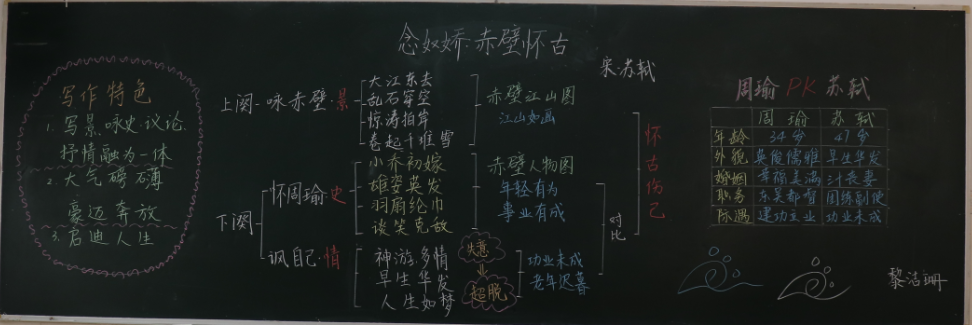 念奴娇·赤壁怀古
宋·苏轼
写作特色
1. 写景、咏史、议论、
抒情融为一体
2. 大气磅礴
豪迈奔放
3. 启迪人生
上阕-咏赤壁·景
大江东去
乱石穿空
惊涛拍岸
卷起千堆雪
赤壁江山图
江山如画
下阕
怀周瑜·史
小乔初嫁
雄姿英发
羽扇纶巾
谈笑克敌
赤壁人物图
年轻有为
事业有成
讽自己·情
神游多情
早生华发
人生如梦
失意
超脱
功业未成
老年迟暮
对比
怀古伤己
周瑜PK苏轼
周瑜 苏轼
年龄 34岁 47岁
外貌 英俊儒雅 早生华发
婚姻 幸福美满 三丧妻
职务 东吴都督 团练副使
际遇 建功立业 功业未成
黎洁珊